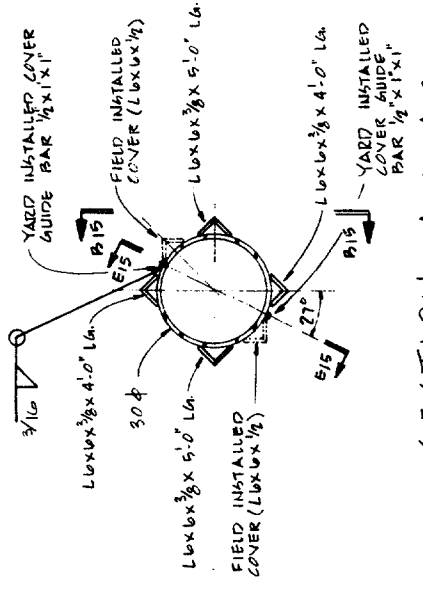 YARD INSTALLED COVER
GUIDE BAR 1/2"x1"x1"
FIELD INSTALLED
COVER (L6x6x1/2)
B15
E15
L6x6x3/8 x 5'-0" LG.
3/16
L6x6x3/8 x 4'-0" LG.
30 φ
L6x6x3/8 x 5'-0" LG.
FIELD INSTALLED
COVER (L6x6x1/2)
L6x6x3/8 x 4'-0" LG.
27°
E15
B15
YARD INSTALLED
COVER GUIDE
BAR 1/2"x1"x1"